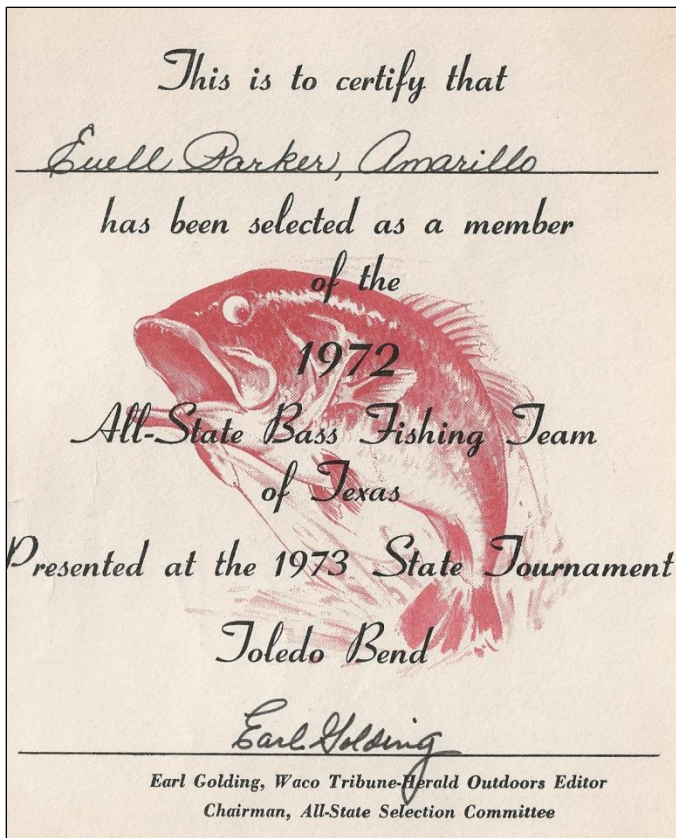 This is to certify that
Euell Parker, Amarillo
has been selected as a member
of the
1972
All-State Bass Fishing Team
of Texas
Presented at the 1973 State Tournament
Toledo Bend
Earl Golding
Earl Golding, Waco Tribune-Herald Outdoors Editor
Chairman, All-State Selection Committee